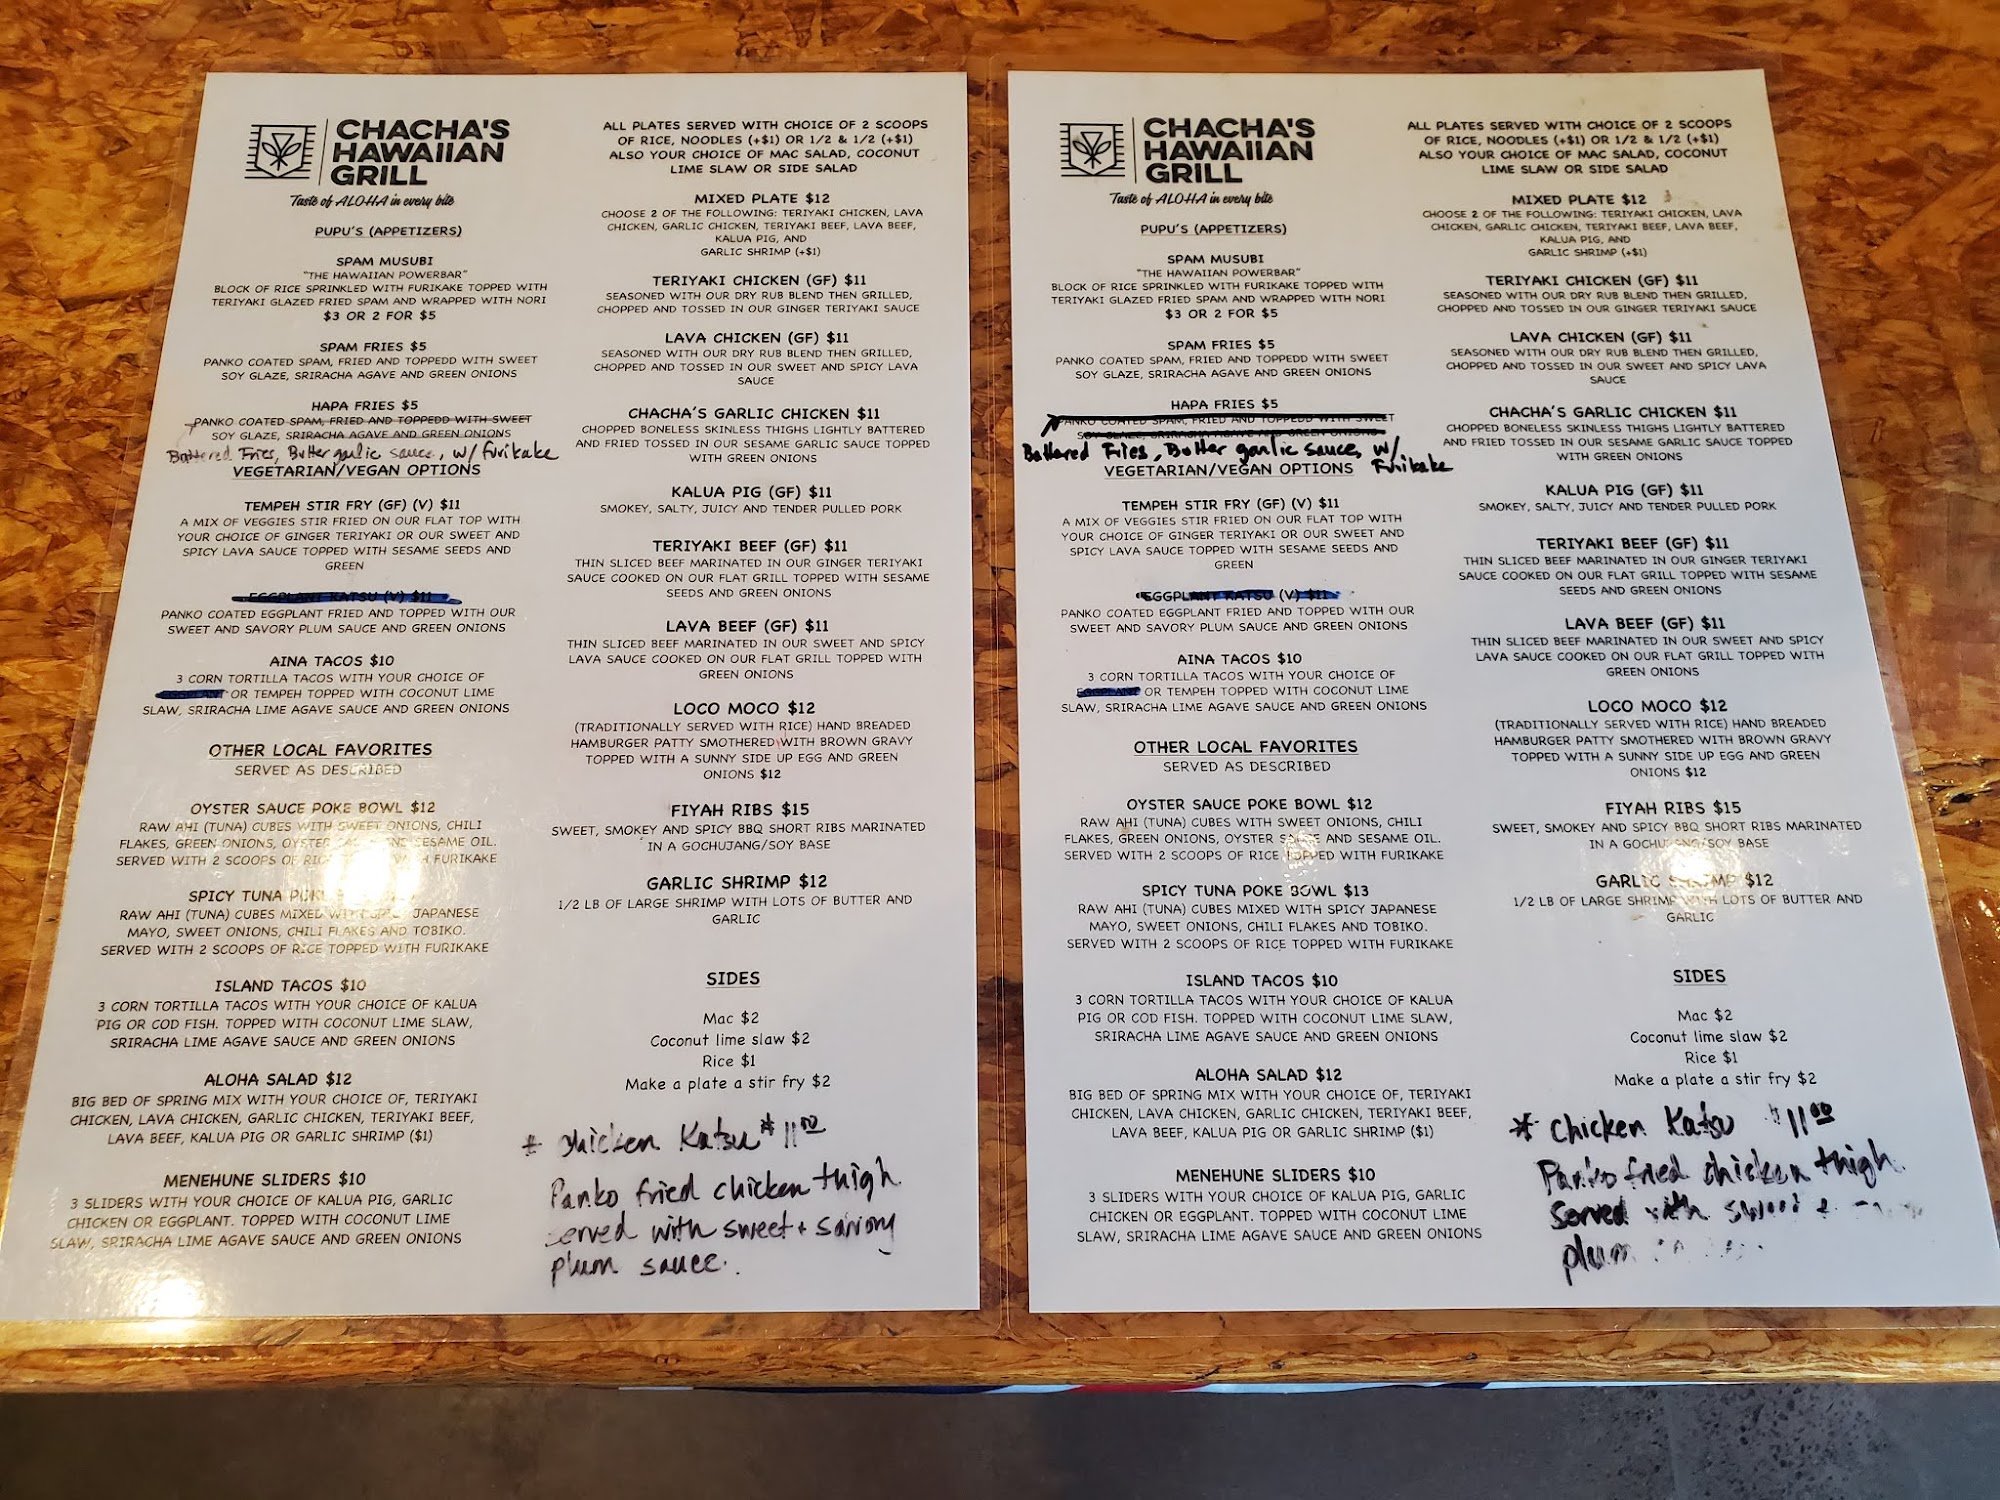 CHACHA'S
HAWAIIAN
GRILL
Taste of ALOHA in every bite
PUPU'S (APPETIZERS)
SPAM MUSUBI
"THE HAWAIIAN POWERBAR"
BLOCK OF RICE SPRINKLED WITH FURIKAKE TOPPED WITH
TERIYAKI GLAZED FRIED SPAM AND WRAPPED WITH NORI
$3 OR 2 FOR $5
SPAM FRIES $5
PANKO COATED SPAM, FRIED AND TOPPEDD WITH SWEET
SOY GLAZE, SRIRACHA AGAVE AND GREEN ONIONS
HAPA FRIES $5
PANKO COATED SPAM, FRIED AND TOPPEDD WITH SWEET
SOY GLAZE, SRIRACHA AGAVE AND GREEN ONIONS
Battered Fries, Butter garlic sauce, w/ furikake
VEGETARIAN/VEGAN OPTIONS
TEMPEH STIR FRY (GF) (V) $11
A MIX OF VEGGIES STIR FRIED ON OUR FLAT TOP WITH
YOUR CHOICE OF GINGER TERIYAKI OR OUR SWEET AND
SPICY LAVA SAUCE TOPPED WITH SESAME SEEDS AND
GREEN
EGGPLANT KATSU (V) $11
PANKO COATED EGGPLANT FRIED AND TOPPED WITH OUR
SWEET AND SAVORY PLUM SAUCE AND GREEN ONIONS
AINA TACOS $10
3 CORN TORTILLA TACOS WITH YOUR CHOICE OF
EGGPLANT OR TEMPEH TOPPED WITH COCONUT LIME
SLAW, SRIRACHA LIME AGAVE SAUCE AND GREEN ONIONS
OTHER LOCAL FAVORITES
SERVED AS DESCRIBED
OYSTER SAUCE POKE BOWL $12
RAW AHI (TUNA) CUBES WITH SWEET ONIONS, CHILI
FLAKES, GREEN ONIONS, OYSTER AND SESAME OIL.
SERVED WITH 2 SCOOPS OF RICE WITH FURIKAKE
SPICY TUNA POKE
RAW AHI (TUNA) CUBES MIXED WITH SPICY JAPANESE
MAYO, SWEET ONIONS, CHILI FLAKES AND TOBIKO.
SERVED WITH 2 SCOOPS OF RICE TOPPED WITH FURIKAKE
ISLAND TACOS $10
3 CORN TORTILLA TACOS WITH YOUR CHOICE OF KALUA
PIG OR COD FISH. TOPPED WITH COCONUT LIME SLAW,
SRIRACHA LIME AGAVE SAUCE AND GREEN ONIONS
ALOHA SALAD $12
BIG BED OF SPRING MIX WITH YOUR CHOICE OF, TERIYAKI
CHICKEN, LAVA CHICKEN, GARLIC CHICKEN, TERIYAKI BEEF,
LAVA BEEF, KALUA PIG OR GARLIC SHRIMP ($1)
MENEHUNE SLIDERS $10
3 SLIDERS WITH YOUR CHOICE OF KALUA PIG, GARLIC
CHICKEN OR EGGPLANT. TOPPED WITH COCONUT LIME
SLAW, SRIRACHA LIME AGAVE SAUCE AND GREEN ONIONS
ALL PLATES SERVED WITH CHOICE OF 2 SCOOPS
OF RICE, NOODLES (+$1) OR 1/2 & 1/2 (+$1)
ALSO YOUR CHOICE OF MAC SALAD, COCONUT
LIME SLAW OR SIDE SALAD
MIXED PLATE $12
CHOOSE 2 OF THE FOLLOWING: TERIYAKI CHICKEN, LAVA
CHICKEN, GARLIC CHICKEN, TERIYAKI BEEF, LAVA BEEF,
KALUA PIG, AND
GARLIC SHRIMP (+$1)
TERIYAKI CHICKEN (GF) $11
SEASONED WITH OUR DRY RUB BLEND THEN GRILLED,
CHOPPED AND TOSSED IN OUR GINGER TERIYAKI SAUCE
LAVA CHICKEN (GF) $11
SEASONED WITH OUR DRY RUB BLEND THEN GRILLED,
CHOPPED AND TOSSED IN OUR SWEET AND SPICY LAVA
SAUCE
CHACHA'S GARLIC CHICKEN $11
CHOPPED BONELESS SKINLESS THIGHS LIGHTLY BATTERED
AND FRIED TOSSED IN OUR SESAME GARLIC SAUCE TOPPED
WITH GREEN ONIONS
KALUA PIG (GF) $11
SMOKEY, SALTY, JUICY AND TENDER PULLED PORK
TERIYAKI BEEF (GF) $11
THIN SLICED BEEF MARINATED IN OUR GINGER TERIYAKI
SAUCE COOKED ON OUR FLAT GRILL TOPPED WITH SESAME
SEEDS AND GREEN ONIONS
LAVA BEEF (GF) $11
THIN SLICED BEEF MARINATED IN OUR SWEET AND SPICY
LAVA SAUCE COOKED ON OUR FLAT GRILL TOPPED WITH
GREEN ONIONS
LOCO MOCO $12
(TRADITIONALLY SERVED WITH RICE) HAND BREADED
HAMBURGER PATTY SMOTHERED WITH BROWN GRAVY
TOPPED WITH A SUNNY SIDE UP EGG AND GREEN
ONIONS $12
FIYAH RIBS $15
SWEET, SMOKEY AND SPICY BBQ SHORT RIBS MARINATED
IN A GOCHUJANG/SOY BASE
GARLIC SHRIMP $12
1/2 LB OF LARGE SHRIMP WITH LOTS OF BUTTER AND
GARLIC
SIDES
Mac $2
Coconut lime slaw $2
Rice $1
Make a plate a stir fry $2
* Chicken Katsu $11.00
Panko fried chicken thigh
served with sweet + savory
plum sauce.
CHACHA'S
HAWAIIAN
GRILL
Taste of ALOHA in every bite
PUPU'S (APPETIZERS)
SPAM MUSUBI
"THE HAWAIIAN POWERBAR"
BLOCK OF RICE SPRINKLED WITH FURIKAKE TOPPED WITH
TERIYAKI GLAZED FRIED SPAM AND WRAPPED WITH NORI
$3 OR 2 FOR $5
SPAM FRIES $5
PANKO COATED SPAM, FRIED AND TOPPEDD WITH SWEET
SOY GLAZE, SRIRACHA AGAVE AND GREEN ONIONS
HAPA FRIES $5
PANKO COATED SPAM, FRIED AND TOPPEDD WITH SWEET
SOY GLAZE, SRIRACHA AGAVE AND GREEN ONIONS
Battered Fries, Butter garlic sauce, w/
Furikake
VEGETARIAN/VEGAN OPTIONS
TEMPEH STIR FRY (GF) (V) $11
A MIX OF VEGGIES STIR FRIED ON OUR FLAT TOP WITH
YOUR CHOICE OF GINGER TERIYAKI OR OUR SWEET AND
SPICY LAVA SAUCE TOPPED WITH SESAME SEEDS AND
GREEN
EGGPLANT KATSU (V) $11
PANKO COATED EGGPLANT FRIED AND TOPPED WITH OUR
SWEET AND SAVORY PLUM SAUCE AND GREEN ONIONS
AINA TACOS $10
3 CORN TORTILLA TACOS WITH YOUR CHOICE OF
EGGPLANT OR TEMPEH TOPPED WITH COCONUT LIME
SLAW, SRIRACHA LIME AGAVE SAUCE AND GREEN ONIONS
OTHER LOCAL FAVORITES
SERVED AS DESCRIBED
OYSTER SAUCE POKE BOWL $12
RAW AHI (TUNA) CUBES WITH SWEET ONIONS, CHILI
FLAKES, GREEN ONIONS, OYSTER SAUCE AND SESAME OIL.
SERVED WITH 2 SCOOPS OF RICE TOPPED WITH FURIKAKE
SPICY TUNA POKE BOWL $13
RAW AHI (TUNA) CUBES MIXED WITH SPICY JAPANESE
MAYO, SWEET ONIONS, CHILI FLAKES AND TOBIKO.
SERVED WITH 2 SCOOPS OF RICE TOPPED WITH FURIKAKE
ISLAND TACOS $10
3 CORN TORTILLA TACOS WITH YOUR CHOICE OF KALUA
PIG OR COD FISH. TOPPED WITH COCONUT LIME SLAW,
SRIRACHA LIME AGAVE SAUCE AND GREEN ONIONS
ALOHA SALAD $12
BIG BED OF SPRING MIX WITH YOUR CHOICE OF, TERIYAKI
CHICKEN, LAVA CHICKEN, GARLIC CHICKEN, TERIYAKI BEEF,
LAVA BEEF, KALUA PIG OR GARLIC SHRIMP ($1)
MENEHUNE SLIDERS $10
3 SLIDERS WITH YOUR CHOICE OF KALUA PIG, GARLIC
CHICKEN OR EGGPLANT. TOPPED WITH COCONUT LIME
SLAW, SRIRACHA LIME AGAVE SAUCE AND GREEN ONIONS
ALL PLATES SERVED WITH CHOICE OF 2 SCOOPS
OF RICE, NOODLES (+$1) OR 1/2 & 1/2 (+$1)
ALSO YOUR CHOICE OF MAC SALAD, COCONUT
LIME SLAW OR SIDE SALAD
MIXED PLATE $12
CHOOSE 2 OF THE FOLLOWING: TERIYAKI CHICKEN, LAVA
CHICKEN, GARLIC CHICKEN, TERIYAKI BEEF, LAVA BEEF,
KALUA PIG, AND
GARLIC SHRIMP (+$1)
TERIYAKI CHICKEN (GF) $11
SEASONED WITH OUR DRY RUB BLEND THEN GRILLED,
CHOPPED AND TOSSED IN OUR GINGER TERIYAKI SAUCE
LAVA CHICKEN (GF) $11
SEASONED WITH OUR DRY RUB BLEND THEN GRILLED,
CHOPPED AND TOSSED IN OUR SWEET AND SPICY LAVA
SAUCE
CHACHA'S GARLIC CHICKEN $11
CHOPPED BONELESS SKINLESS THIGHS LIGHTLY BATTERED
AND FRIED TOSSED IN OUR SESAME GARLIC SAUCE TOPPED
WITH GREEN ONIONS
KALUA PIG (GF) $11
SMOKEY, SALTY, JUICY AND TENDER PULLED PORK
TERIYAKI BEEF (GF) $11
THIN SLICED BEEF MARINATED IN OUR GINGER TERIYAKI
SAUCE COOKED ON OUR FLAT GRILL TOPPED WITH SESAME
SEEDS AND GREEN ONIONS
LAVA BEEF (GF) $11
THIN SLICED BEEF MARINATED IN OUR SWEET AND SPICY
LAVA SAUCE COOKED ON OUR FLAT GRILL TOPPED WITH
GREEN ONIONS
LOCO MOCO $12
(TRADITIONALLY SERVED WITH RICE) HAND BREADED
HAMBURGER PATTY SMOTHERED WITH BROWN GRAVY
TOPPED WITH A SUNNY SIDE UP EGG AND GREEN
ONIONS $12
FIYAH RIBS $15
SWEET, SMOKEY AND SPICY BBQ SHORT RIBS MARINATED
IN A GOCHUJANG/SOY BASE
GARLIC SHRIMP $12
1/2 LB OF LARGE SHRIMP WITH LOTS OF BUTTER AND
GARLIC
SIDES
Mac $2
Coconut lime slaw $2
Rice $1
Make a plate a stir fry $2
* Chicken Katsu $11.00
Panko fried chicken thigh
Served with sweet +
plum